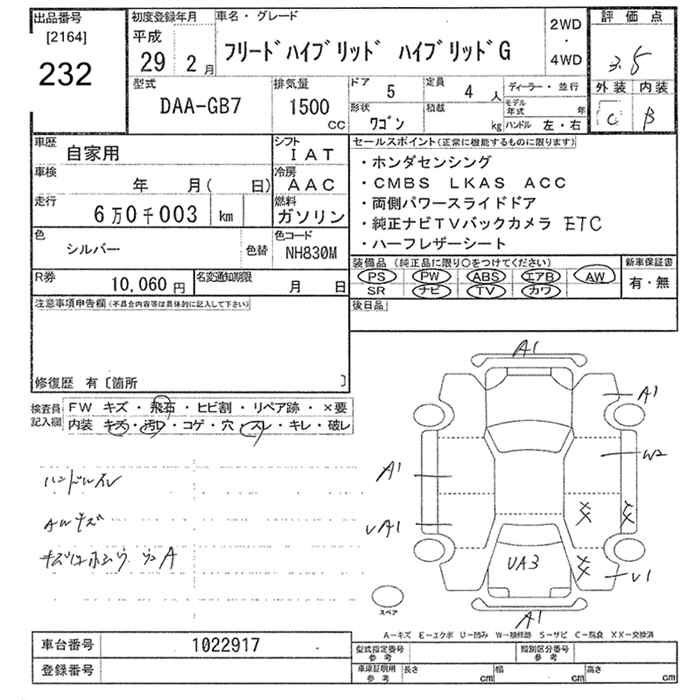 出品番号 初度登録年月 車名・グレード 評価点
[2164] 平成 2WD
232 29年 2月 フリードハイブリッド ハイブリッドG ・ 4WD 3.5
型式 排気量 ドア 5 定員 4人 ディーラー・並行 外装 内装
DAA-GB7 1500 CC 形状 ワゴン 積載 kg モデル年式 年 C B
ハンドル 左・右
車歴 自家用 シフト IAT セールスポイント(正常に機能するものに限ります)
車検 年 月( 日) 冷房 AAC ・ホンダセンシング
・CMBS LKAS ACC
走行 6万0千003 km 燃料 ガソリン ・両側パワースライドドア
・純正ナビTVバックカメラ ETC
色 シルバー 色替 色コード NH830M ・ハーフレザーシート
装備品 (純正品に限り○をつけてください) 新車保証書
R券 10,060円 名変通知期限 月 日 PS PW ABS エアB AW 有・無
SR ナビ TV カワ
注意事項申告欄(不具合内容等は具体的に記入して下さい) 後日品
修復歴 有〔箇所 〕
検査員記入欄 FW キズ・飛石・ヒビ割・リペア跡・×要
内装 キズ・汚レ・コゲ・穴・スレ・キレ・破レ
A1
A1
W2
A1
XX XX
UA1
UA3
XX
U1
A1
ハンドルスレ
AWキズ
スペア
A-キズ E-エクボ U-凹み W-補修跡 S-サビ C-腐食 XX-交換済
車台番号 1022917 型式指定番号 参考 類別区分番号 参考
登録番号 車庫証明用 参考 長さ cm 幅 cm 高さ cm